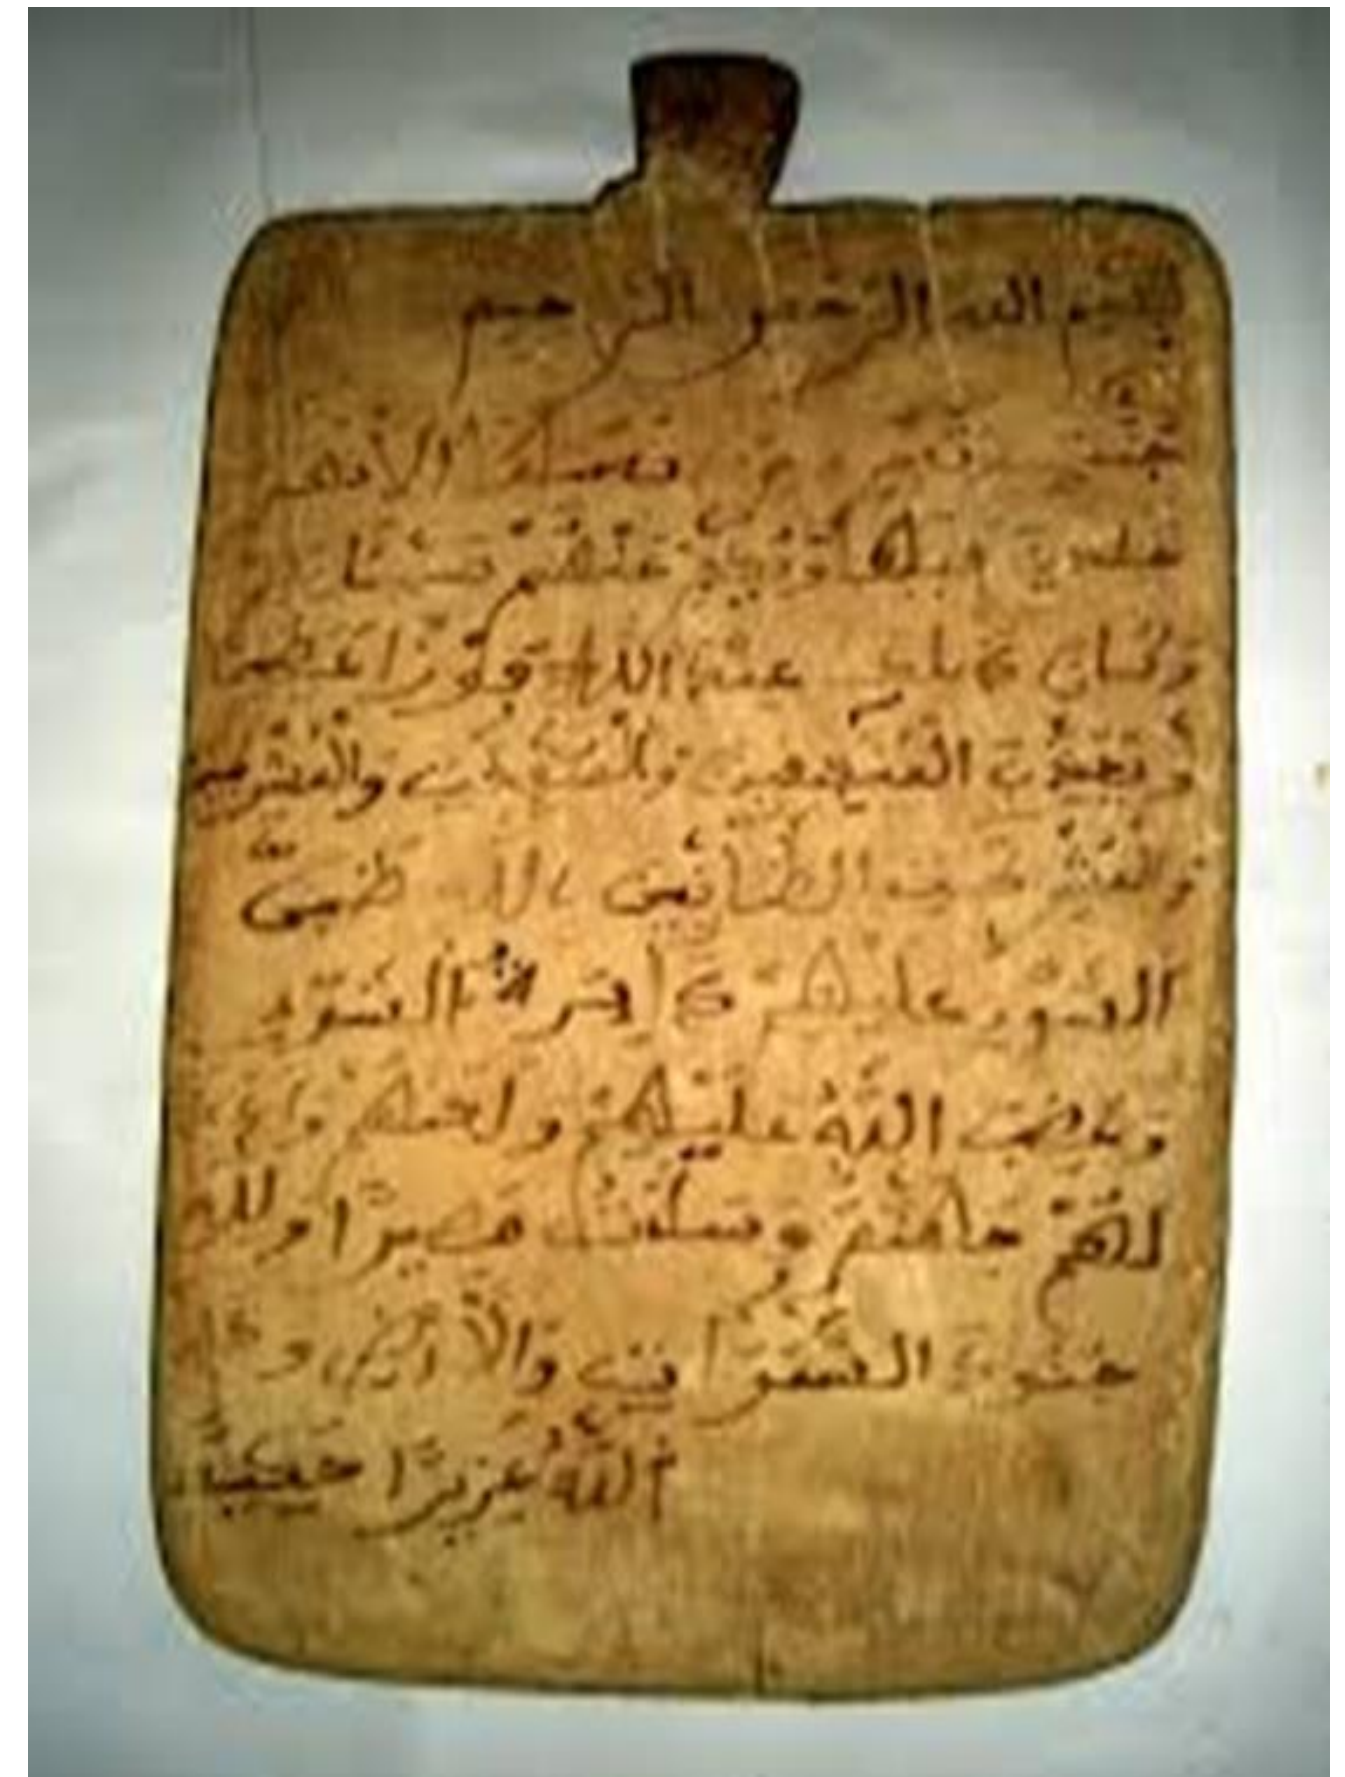 بسم الله الرحمن الرحيم
جنت تجر من تحتها الانهر
خلدين فيها ويكفر عنهم سيئا
وكان ذلك عند الله فوزا عظيما
ويعذب المنفقين والمنفقت والمشركين
والمشركت الظانين بالله ظن
السوء عليهم دائرة السوء
وغضب الله عليهم ولعنهم واعد
لهم جهنم وساءت مصيرا ولله
جنود السموات والارض وكان
الله عزيزا حكيما